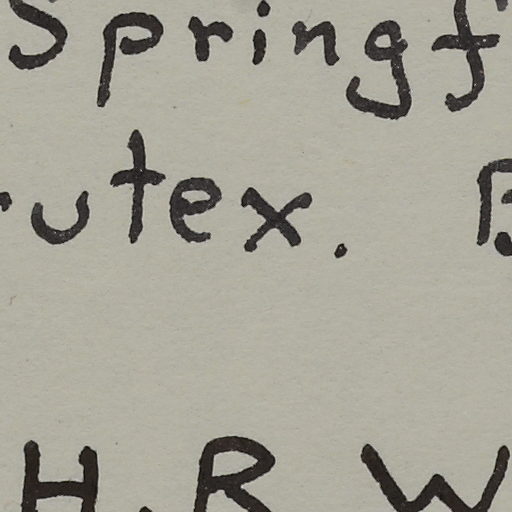 Springf
utex. B
H.R.W